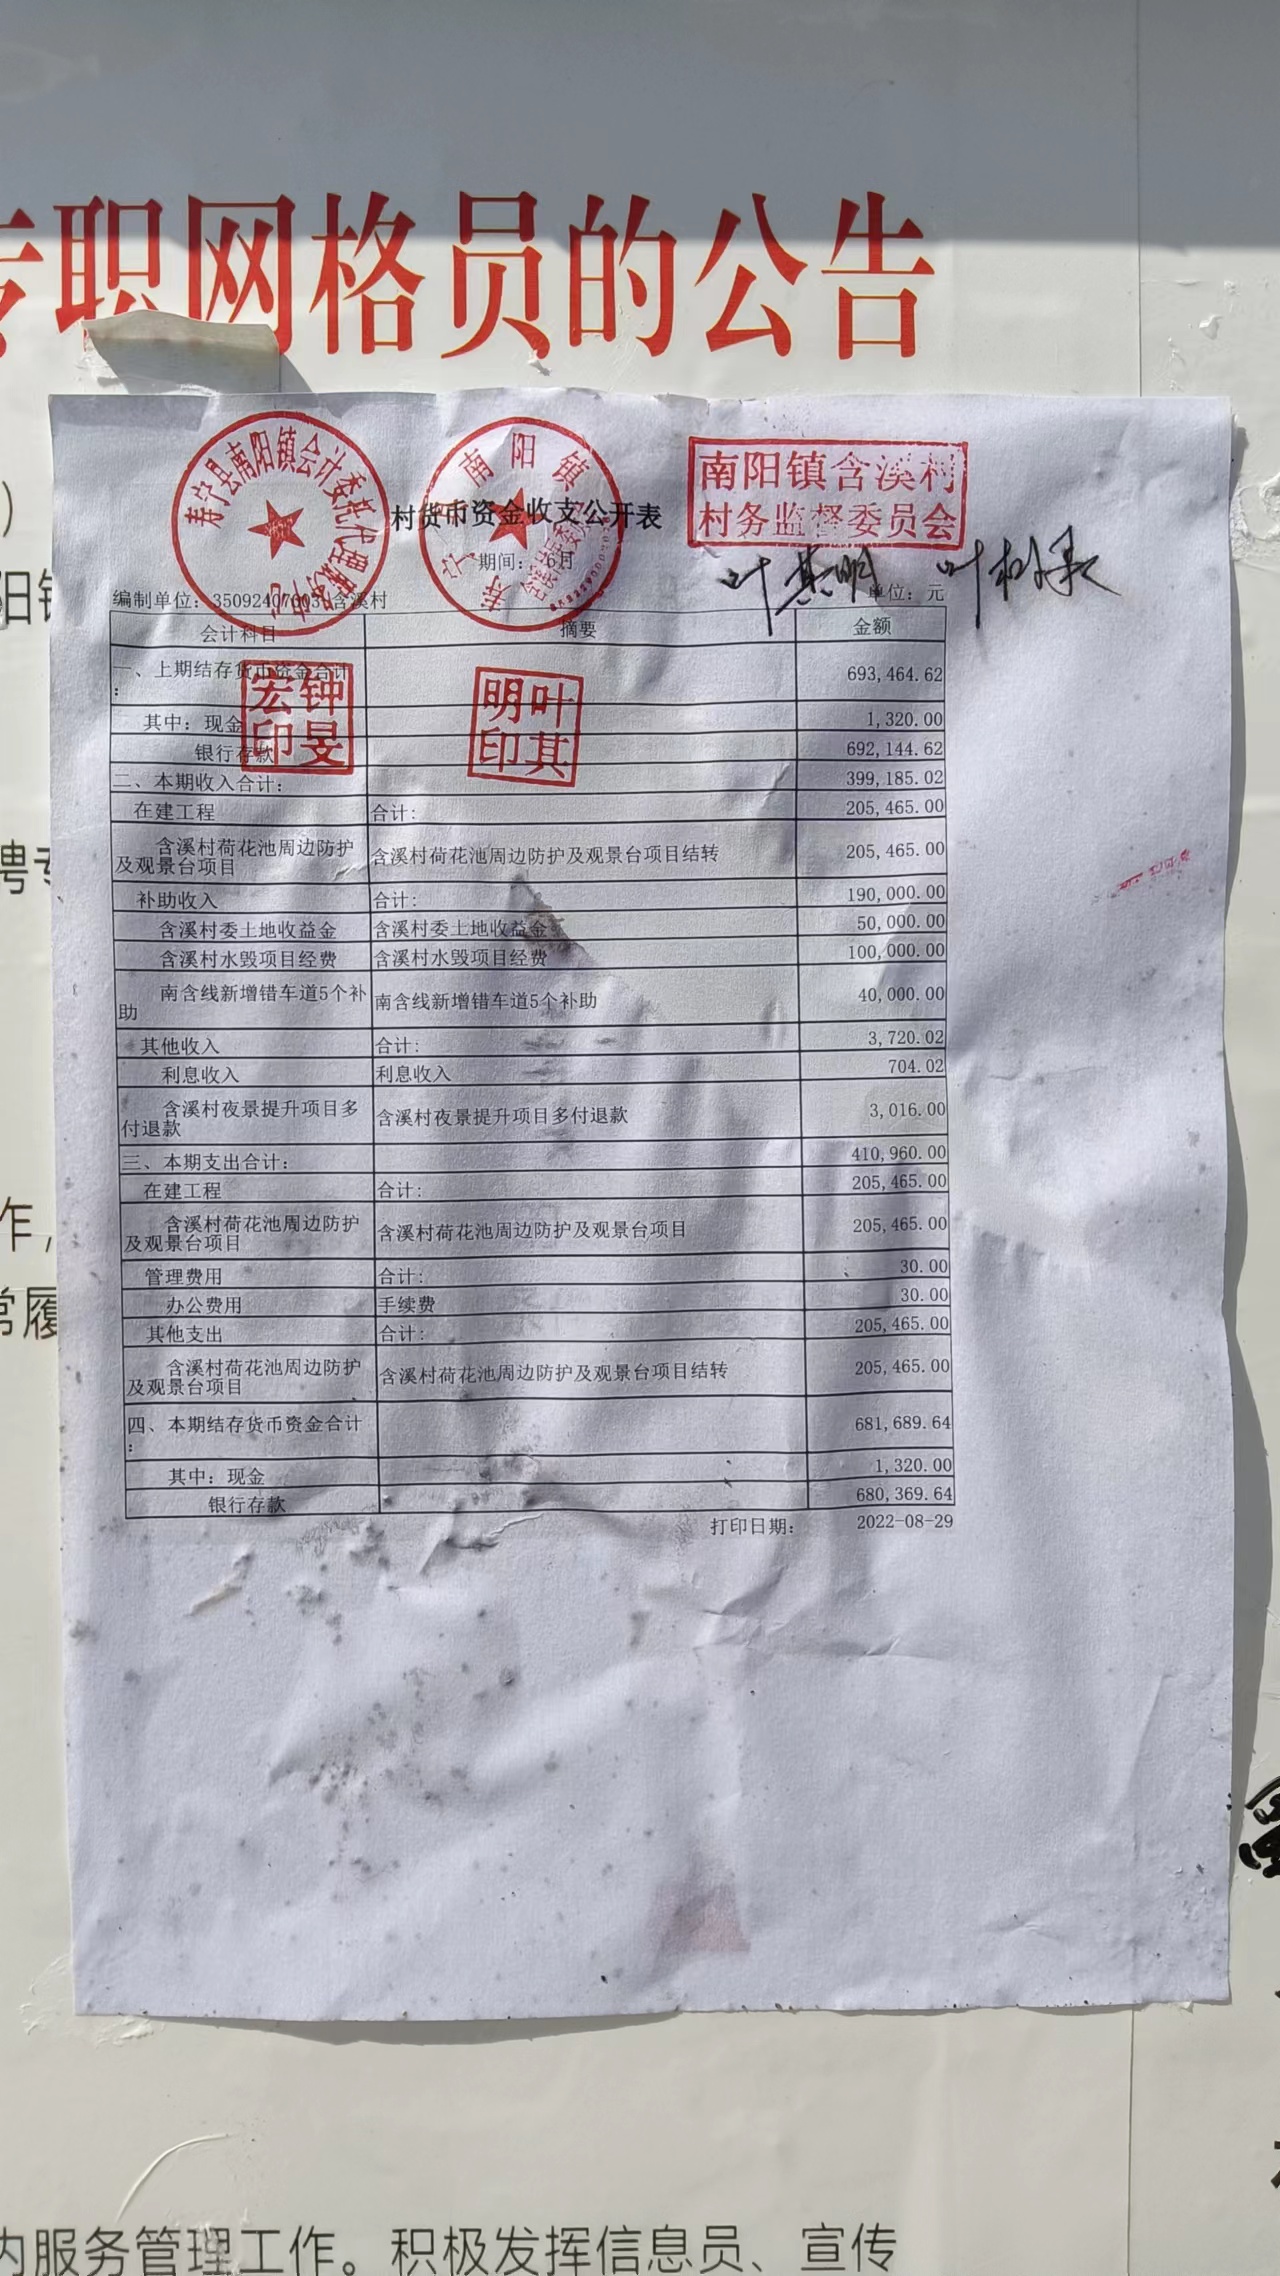 专职网格员的公告
寿宁县南阳镇会计委托代理服务中心
南阳镇
南阳镇含溪村
村务监督委员会
村货币资金收支公开表
期间: 6月
叶其明
编制单位: 含溪村 单位: 元
会计科目 摘要 金额
一、上期结存货币资金合计: 693,464.62
其中: 现金 1,320.00
银行存款 692,144.62
钟旻宏印
叶其明印
二、本期收入合计: 399,185.02
在建工程 合计: 205,465.00
含溪村荷花池周边防护及观景台项目 含溪村荷花池周边防护及观景台项目结转 205,465.00
补助收入 合计: 190,000.00
含溪村委土地收益金 含溪村委土地收益金 50,000.00
含溪村水毁项目经费 含溪村水毁项目经费 100,000.00
南含线新增错车道5个补助 南含线新增错车道5个补助 40,000.00
其他收入 合计: 3,720.02
利息收入 利息收入 704.02
含溪村夜景提升项目多付退款 含溪村夜景提升项目多付退款 3,016.00
三、本期支出合计: 410,960.00
在建工程 合计: 205,465.00
含溪村荷花池周边防护及观景台项目 含溪村荷花池周边防护及观景台项目 205,465.00
管理费用 合计: 30.00
办公费用 手续费 30.00
其他支出 合计: 205,465.00
含溪村荷花池周边防护及观景台项目 含溪村荷花池周边防护及观景台项目结转 205,465.00
四、本期结存货币资金合计: 681,689.64
其中: 现金 1,320.00
银行存款 680,369.64
打印日期: 2022-08-29
内服务管理工作。积极发挥信息员、宣传